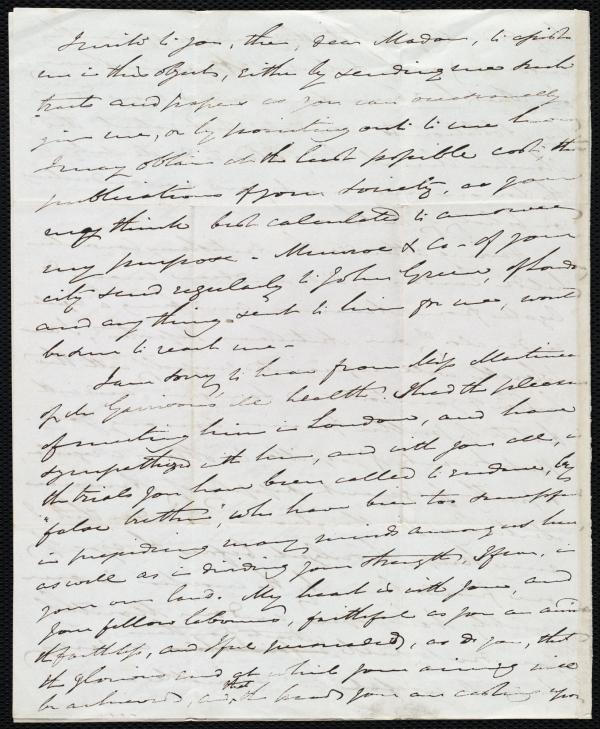 I write to you, then, dear Madam, to assist
me in this object, either by sending me such
tracts and papers as you can occasionally
give me, or by pointing out to me how
I may obtain at the least possible cost, the
publications of your Society, as you
may think best calculated to answer
my purpose - Munroe & Co - of your
city send regularly to John Green, of London
and any thing sent to him for me, would
be sure to reach me -
I am sorry to hear from Miss Martineau
of Mr Garrison's ill health. I had the pleasure
of meeting him in London, and have
sympathized with him, and with you all, in
the trials you have been called to endure, by
"false brethren", who have been too successful
in prejudicing many minds amongst us here,
as well as in dividing your strength, I fear, in
your own land. My heart is with you, and
your fellow labourers, faithful as you are amidst
the faithless, and I feel persuaded, as do you, that
the glorious end at which you are aiming will
be achieved, and that the bread you are casting upon